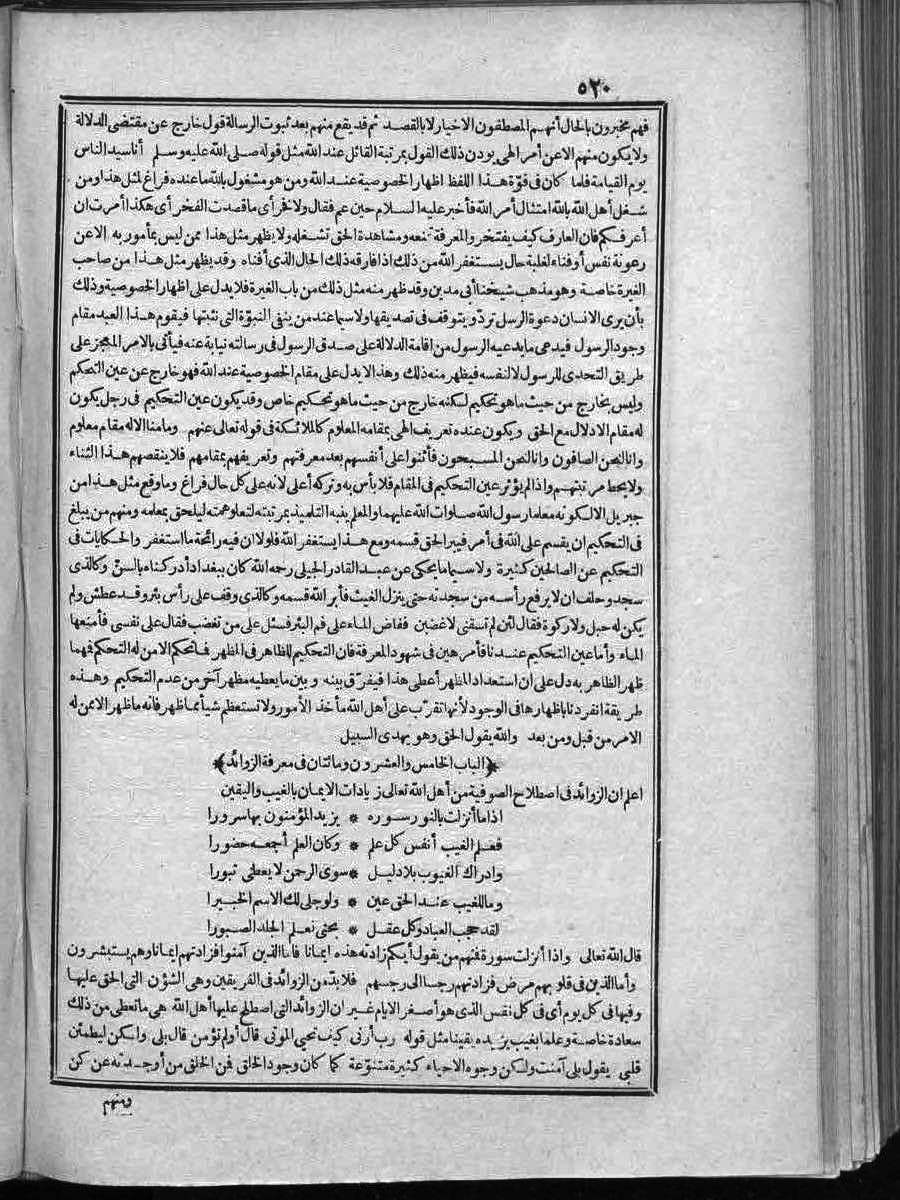 ٥٢٠
فهم مخبرون بالحال أنهم المصطفون الاخيار لا بالقصد ثم قد يقع منهم بعد ثبوت الرسالة قول خارج عن مقتضى الدلالة
ولا يكون منهم الا عن أمر الهى يوذن ذلك القول بمرتبة القائل عند الله مثل قوله صلى الله عليه وسلم أنا سيد الناس
يوم القيامة فلما كان فى قوّة هذا اللفظ اظهار الخصوصية عند الله ومن هو مشغول بالله ما عنده فراغ لمثل هذا ومن
شغل أهل الله بالله امتثال أمر الله فأخبر عليه السلام حين عم فقال ولا فخر أى ما قصدت الفخر أى هكذا أمرت ان
أعرفكم فان العارف كيف يفتخر والمعرفة تمنعه ومشاهدة الحق تشغله ولا يظهر مثل هذا ممن ليس بمأمور به الا عن
رعونة نفس أو فناء لغلبة حال يستغفر الله من ذلك اذا فارقه ذلك الحال الذى أفناه وقد يظهر مثل هذا من صاحب
الغيرة خاصة وهو مذهب شيخنا أبى مدين وقد ظهر منه مثل ذلك من باب الغيرة فلا يدل على اظهار الخصوصية وذلك
بأن يرى الانسان دعوة الرسل تردّ ويتوقف فى تصديقها ولا سيما عند من ينفى النبوّة التى نثبتها فيقوم هذا العبد مقام
وجود الرسول فيدعى ما يدعيه الرسول من اقامة الدلالة على صدق الرسول فى رسالته نيابة عنه فيأتى بالامر المعجز على
طريق التحدى للرسول لا لنفسه فيظهر منه ذلك وهذا لا يدل على مقام الخصوصية عند الله فهو خارج عن عين التحكم
وليس بخارج من حيث ما هو تحكيم لكنه خارج من حيث ما هو تحكيم خاص وقد يكون عين التحكيم فى رجل يكون
له مقام الادلال مع الحق ويكون عنده تعريف الهى بمقامه المعلوم كالملائكة فى قوله تعالى عنهم وما منا الا له مقام معلوم
وانا لنحن الصافون وانا لنحن المسبحون فأثنوا على أنفسهم بعد معرفتهم وتعريفهم بمقامهم فلا ينقصهم هذا الثناء
ولا يحط مرتبتهم واذا لم يؤثر عين التحكيم فى المقام فلا بأس به وتركه أعلى لانه على كل حال فراغ وما وقع مثل هذا من
جبريل الا لكونه معلما رسول الله صلوات الله عليهما والمعلم ينبه التلميذ بمرتبته لتعلو همته ليلحق بمعلمه ومنهم من يبلغ
فى التحكيم ان يقسم على الله فى أمر فيبر الحق قسمه ومع هذا يستغفر الله فلولا ان فيه رائحة ما استغفر والحكايات فى
التحكيم عن الصالحين كثيرة ولا سيما ما يحكى عن عبد القادر الجيلى رحمه الله كان ببغداد أدركناه بالسنّ وكالذى
سجد وحلف ان لا يرفع رأسه من سجدته حتى ينزل الغيث فأبر الله قسمه وكالذى وقف على رأس بئر وقد عطش ولم
يكن له حبل ولا ركوة فقال لئن لم تسقنى لاغضبن ففاض الماء على فم البئر فسئل على من تغضب فقال على نفسى فأمنعها
الماء وأما عين التحكيم عندنا فأمر هين فى شهود المعرفة فان التحكيم للظاهر فى المظهر فما تحكم الا من له التحكم فهما
ظهر الظاهر به دل على ان استعداد المظهر أعطى هذا فيفرّق بينه وبين ما يعطيه مظهر آخر من عدم التحكيم وهذه
طريقة انفردنا باظهارها فى الوجود لأنها تقرّب على أهل الله مأخذ الأمور ولا تستعظم شيأ مما ظهر فانه ما ظهر الا ممن له
الامر من قبل ومن بعد والله يقول الحق وهو يهدى السبيل
﴿الباب الخامس والعشرون ومائتان فى معرفة الزوائد﴾
اعلم ان الزوائد فى اصطلاح الصوفية من أهل الله تعالى زيادات الايمان بالغيب واليقين
اذا ما أنزلت بالنور سوره * يزيد المؤمنون بها سرورا
فعلم الغيب أنفس كل علم * وكان العلم أجمعه حضورا
وادراك الغيوب بلا دليل * سوى الرحمن لا يعطى ثبورا
وما للغيب عند الحق عين * ولو جلى لك الاسم الخبيرا
لقد حجب العباد وكل عقل * بحتى نعلم الجلد الصبورا
قال الله تعالى واذا أنزلت سورة فمنهم من يقول أيكم زادته هذه ايمانا فاما الذين آمنوا فزادتهم ايمانا وهم يستبشرون
وأما الذين فى قلوبهم مرض فزادتهم رجسا الى رجسهم فلا بدّ من الزوائد فى الفريقين وهى الشؤن التى الحق عليها
وفيها فى كل يوم أى فى كل نفس الذى هو أصغر الايام غير ان الزوائد التى اصطلح عليها أهل الله هى ما تعطى من ذلك
سعادة خاصة وعلما بغيب يزيده يقينا مثل قوله رب أرنى كيف تحيى الموتى قال أولم تؤمن قال بلى ولكن ليطمئن
قلبى يقول بلى آمنت ولكن وجوه الاحياء كثيرة متنوّعة كما كان وجود الخلق فمن الخلق من أوجدته عن كن
ومنهم